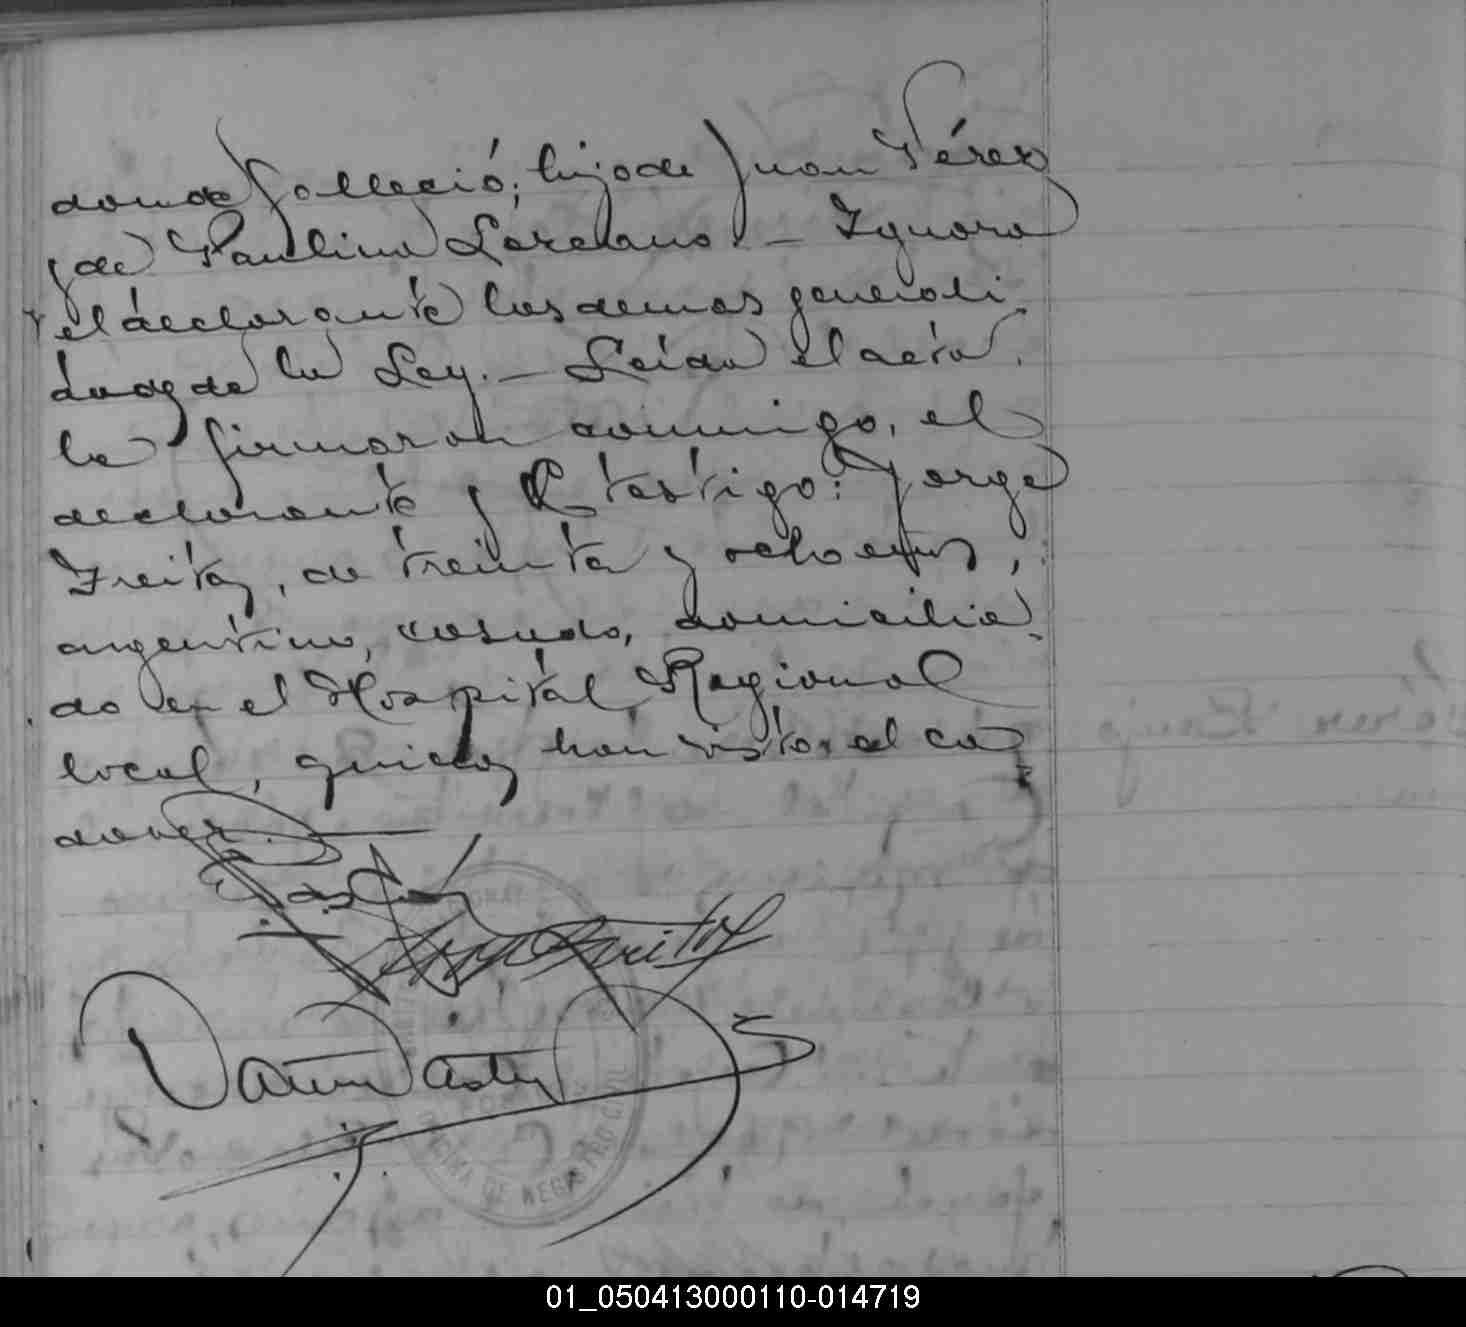 donde falleció; hijo de Juan Pérez
y de Paulina Lorenano. — Ignora
el declarante las demas generali
dades de la Ley. — Leída el acta,
la firmaron conmigo, el
declarante y el testigo: Jorge
Freitas, de treinta y ocho años,
argentino, casado, domicilia
do en el Hospital Regional
local, quienes han visto el ca
daver.
OFICINA DE REGISTRO CIVIL
01_050413000110-014719